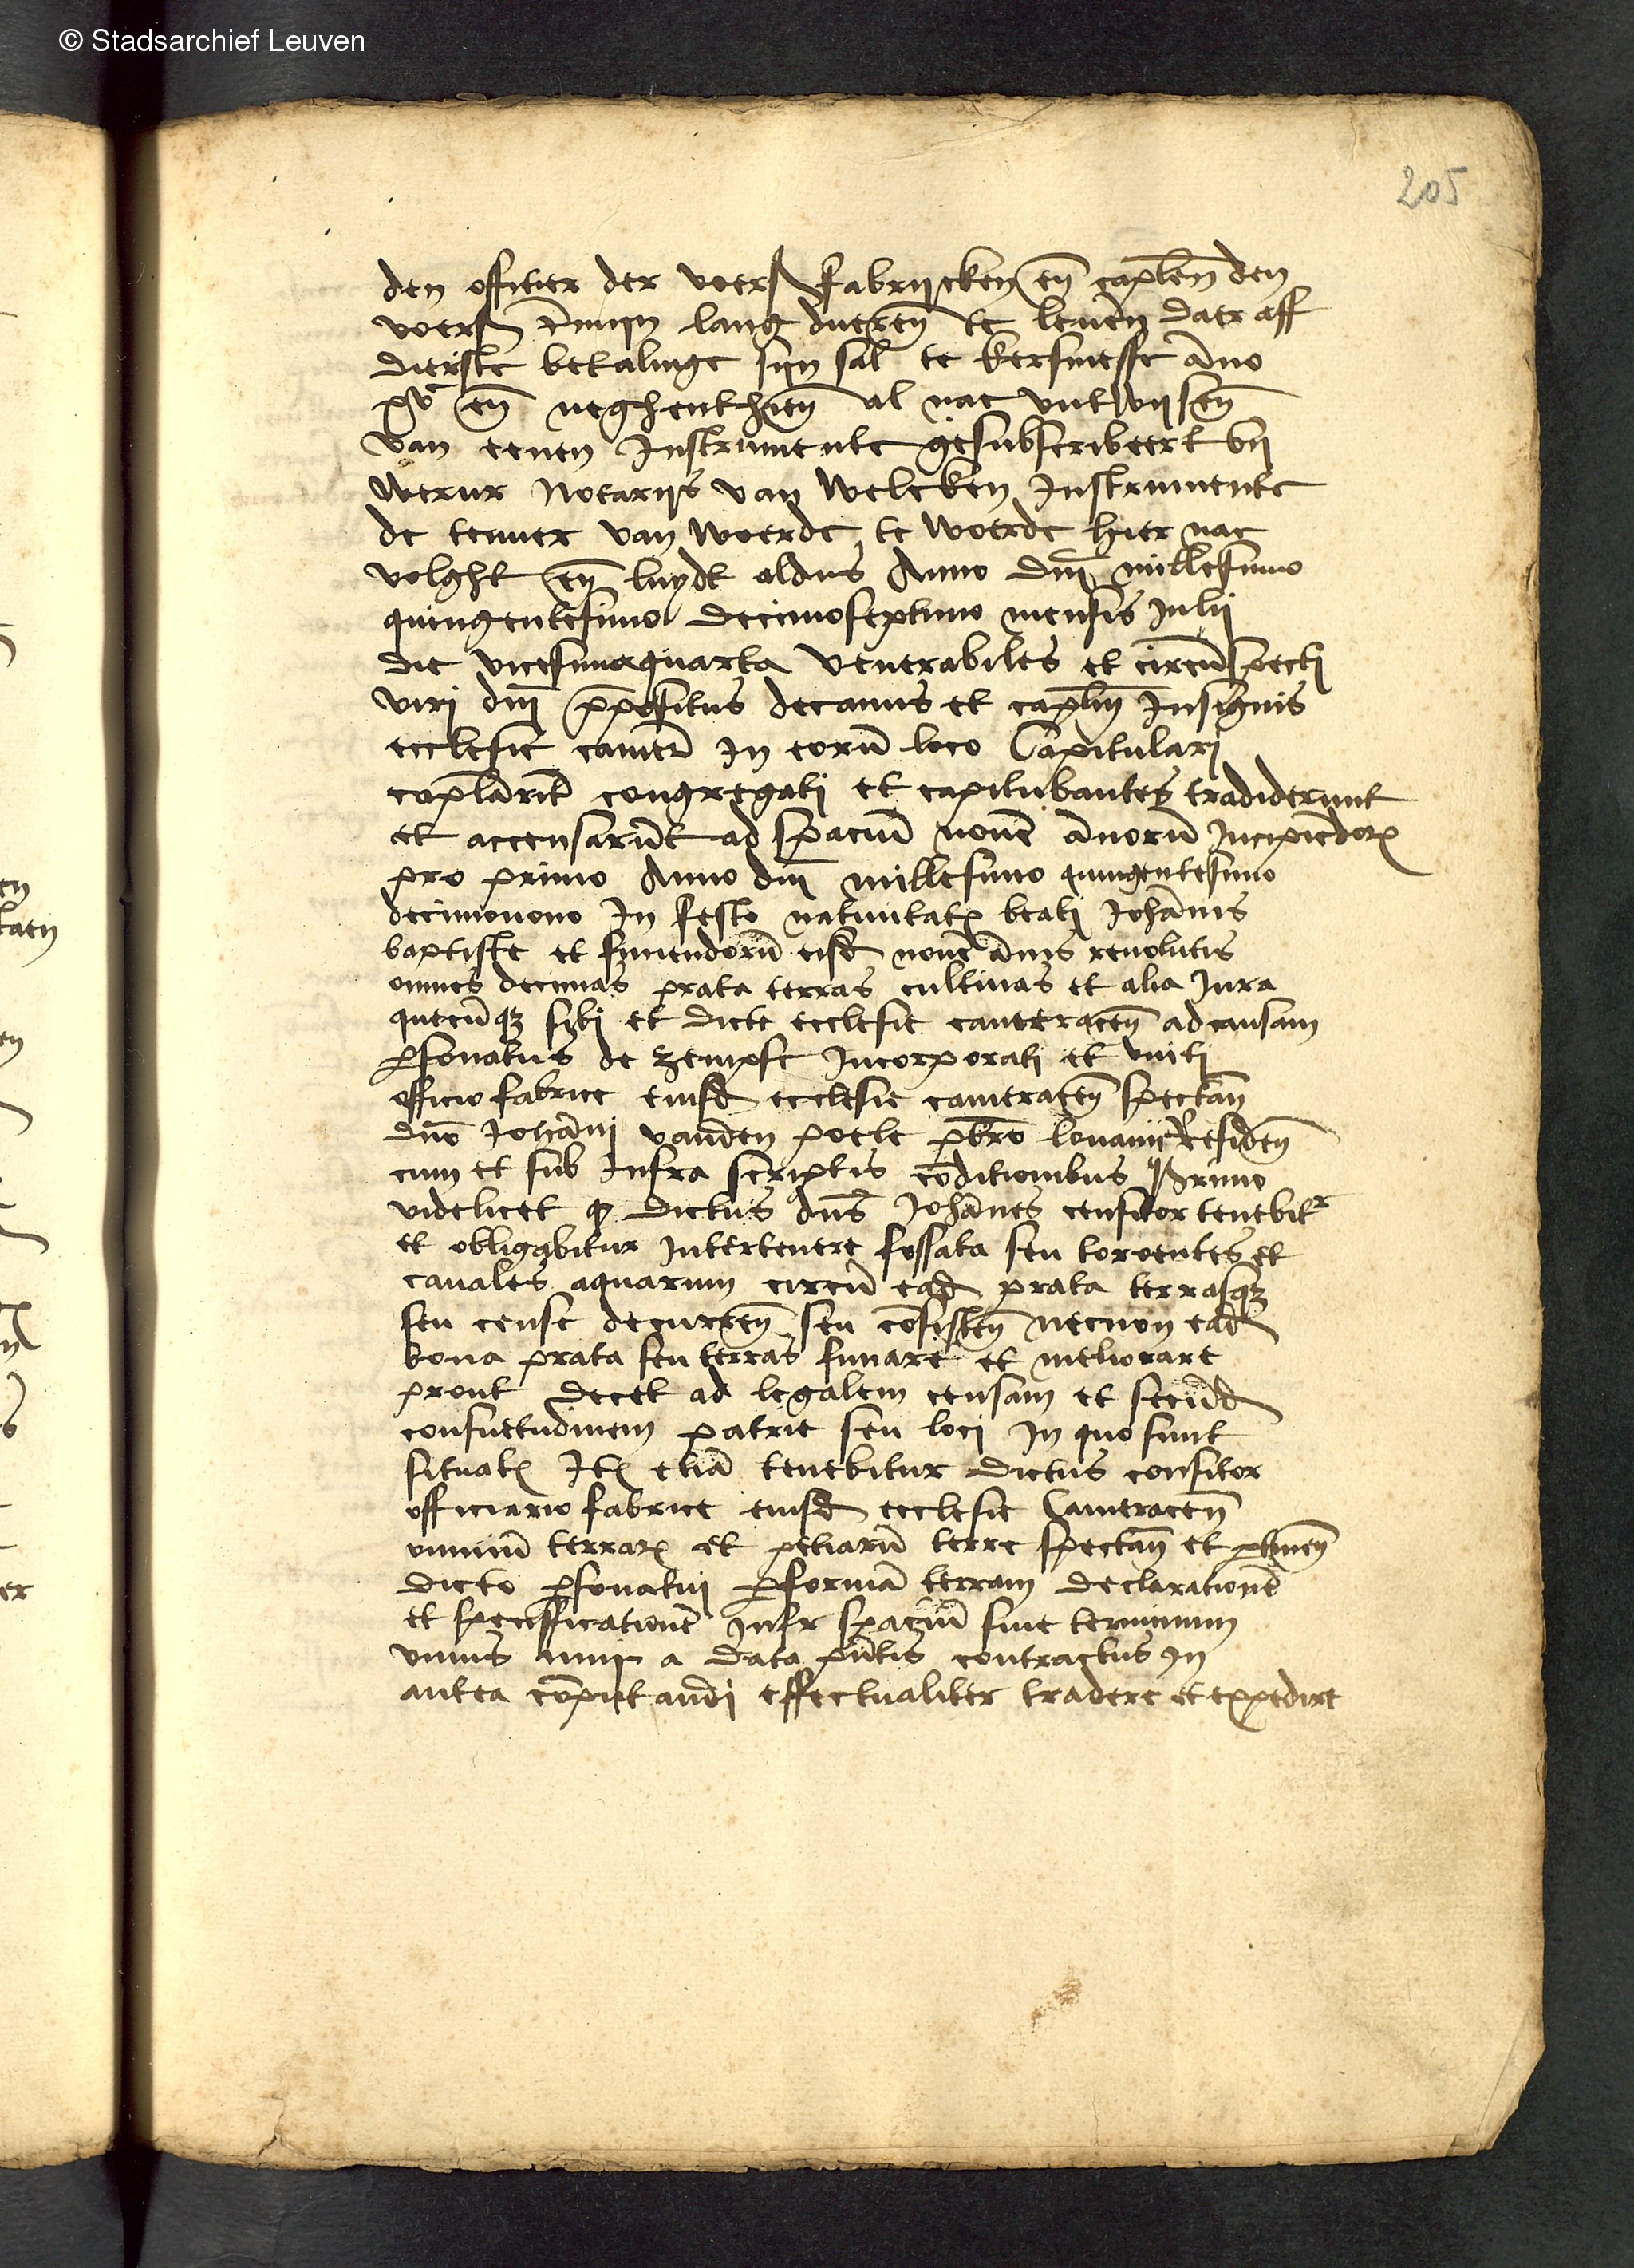 © Stadsarchief Leuven
205
den officier der voers fabrijcken en̄ capl̄en den
voers t̄mijn lang duerēn te leuen̄ daer aff
dierste betalinge sijn sal te kersmesse āno
xvc en̄ neghenthien̄ al nae vutwijsen̄
van eenen Instrumente gesubscribeert bij
Notarijs van welcken Instrumente
de tenuer van woerde te woerde hier nae
volght en̄ luydt aldus Anno dn̄i millesimo
quingentesimo decimoseptimo mensis Julij
die vicesimaquarta venerabiles et circūspecti
viri dn̄i p̄positus decanus et capl̄m Insignis
ecclesie camer̄ In eorū loco Capitulari
capl̄arit̄ congregati et capitulantes tradiderunt
et accensarūt ad spaciū nouē ānorū Incipiēdorꝝ
pro primo Anno dn̄i millesimo quingentesimo
decimonono In festo natiuitatꝭ beati Johānis
baptiste et finiendorū eisd nouē ānis reuolutis
omnes decimas prata terras cultiuas et alia Jura
quecūqꝫ sibi et dicte ecclesie cameracen̄ ad causam
ꝑsonatus de Zempse Incorporati et vniti
officio fabrice eiusd ecclesie cameracen̄ spectan̄
dn̄o Johāni vanden poele pb̄ro louanij Residen̄
cum et sub Infra scriptis cōditionibus Primo
videlicet ꝙ dictus dn̄s Johānes censitor tenebitr
et obligabitur Intertenere fossata seu torrentes et
canales aquarum circū ead prata terrasqꝫ
seu cense decurren̄ seu cōsisten̄ necnon ead
bona prata seu terras fimare et meliorare
prout decet ad legalem censam et secūd
consuetudinem patrie seu loci In quo sunt
situatꝭ Itꝭ etiā tenebitur dictus censitor
officiario fabrice eiusd ecclesie Cameracen̄
omniū terrarꝝ et petiarū terre spectan̄ et ꝑtinen̄
dicto ꝑsonatui ꝑ formā terram declarationē
et specifficationē Infr spaciū siue terminum
vnius anni a data pn̄tis contractus In
antea cōputandi effectualiter tradere et expedire